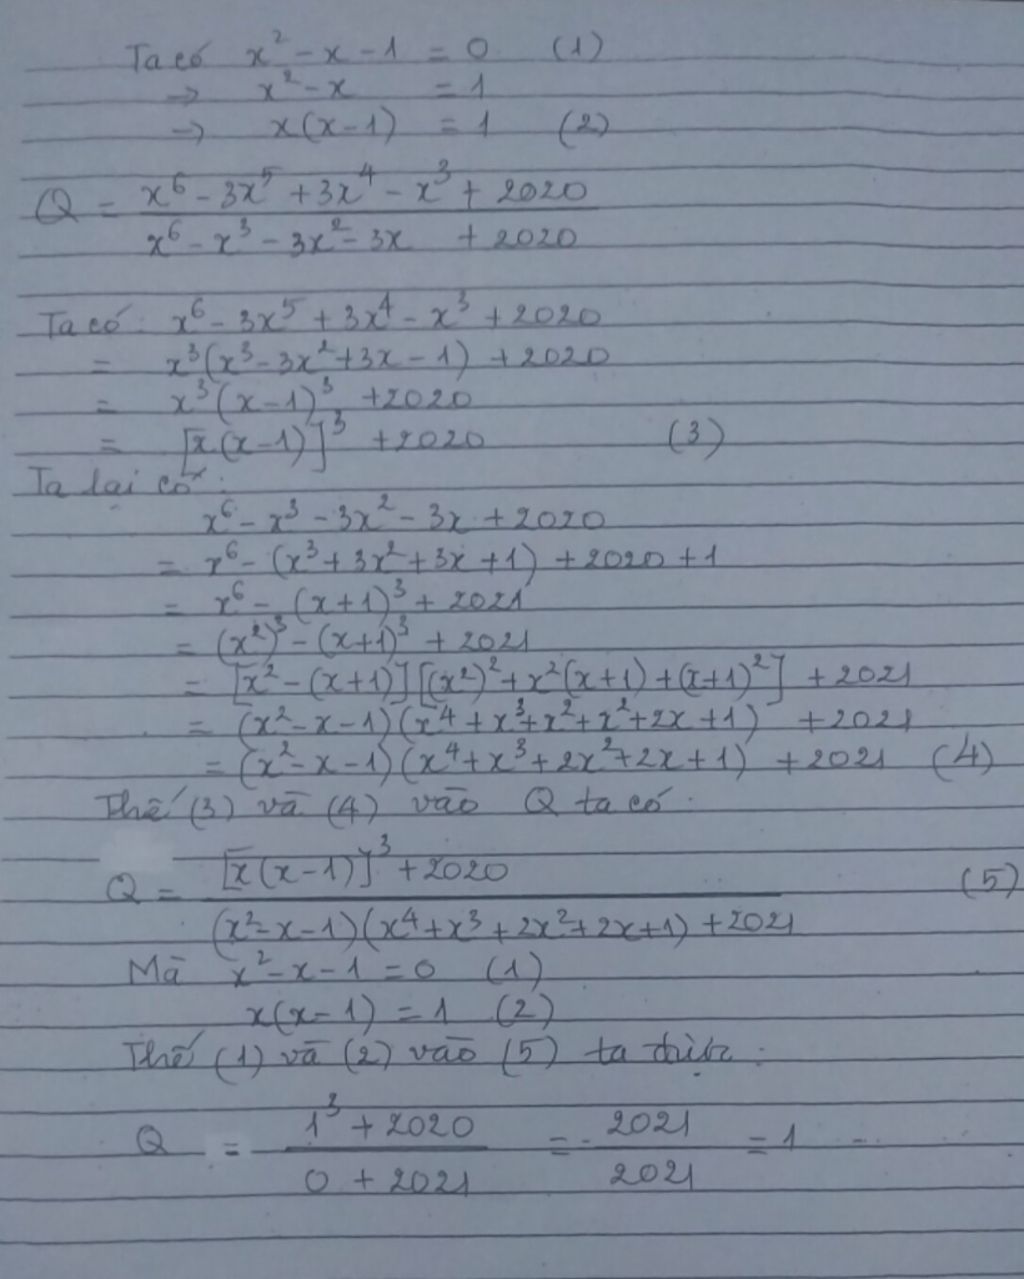 Ta có x² - x - 1 = 0 (1)
→ x² - x = 1
→ x(x-1) = 1 (2)
Q = \frac{x⁶ - 3x⁵ + 3x⁴ - x³ + 2020}{x⁶ - x³ - 3x² - 3x + 2020}
Ta có: x⁶ - 3x⁵ + 3x⁴ - x³ + 2020
= x³(x³ - 3x² + 3x - 1) + 2020
= x³(x-1)³ + 2020
= [x(x-1)]³ + 2020 (3)
Ta lại có:
x⁶ - x³ - 3x² - 3x + 2020
= x⁶ - (x³ + 3x² + 3x + 1) + 2020 + 1
= x⁶ - (x+1)³ + 2021
= (x²)³ - (x+1)³ + 2021
= [x² - (x+1)][(x²)² + x²(x+1) + (x+1)²] + 2021
= (x² - x - 1)(x⁴ + x³ + x² + x² + 2x + 1) + 2021
= (x² - x - 1)(x⁴ + x³ + 2x² + 2x + 1) + 2021 (4)
Thế (3) và (4) vào Q ta có:
Q = \frac{[x(x-1)]³ + 2020}{(x² - x - 1)(x⁴ + x³ + 2x² + 2x + 1) + 2021} (5)
Mà x² - x - 1 = 0 (1)
x(x-1) = 1 (2)
Thế (1) và (2) vào (5) ta được:
Q = \frac{1³ + 2020}{0 + 2021} = \frac{2021}{2021} = 1